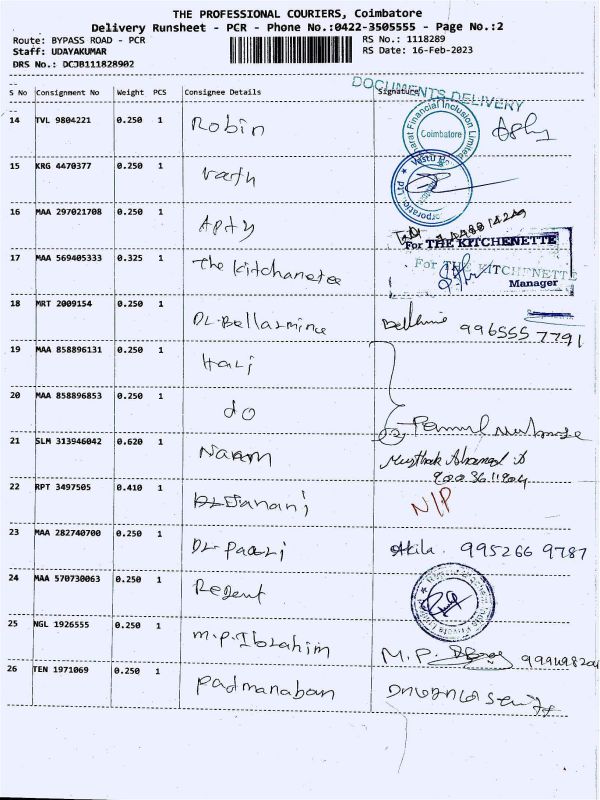 THE PROFESSIONAL COURIERS, Coimbatore
Delivery Runsheet - PCR - Phone No.:0422-3505555 - Page No.:2
Route: BYPASS ROAD - PCR
RS No.: 1118289
Staff: UDAYAKUMAR
RS Date: 16-Feb-2023
DRS No.: DCJB111828902
S No Consignment No Weight PCS Consignee Details Signature
DOCUMENTS DELIVERY
14 TVL 9804221 0.250 1 Robin
Financial Inclusion Limited
Coimbatore
15 KRG 4470377 0.250 1
16 MAA 297021708 0.250 1
For THE KITCHENETTE
17 MAA 569405333 0.325 1 The Kitchanetee
For THE KITCHENETTE
Manager
18 MRT 2009154 0.250 1 DL-Bellarmine 996555 7791
19 MAA 858896131 0.250 1 Hali
20 MAA 858896853 0.250 1 do
21 SLM 313946042 0.620 1
22 RPT 3497505 0.410 1 N/P
23 MAA 282740700 0.250 1 Akila. 995266 9787
24 MAA 570730063 0.250 1 Regent
25 NGL 1926555 0.250 1 M.P. Ibrahim M.P.
26 TEN 1971069 0.250 1 Padmanaban